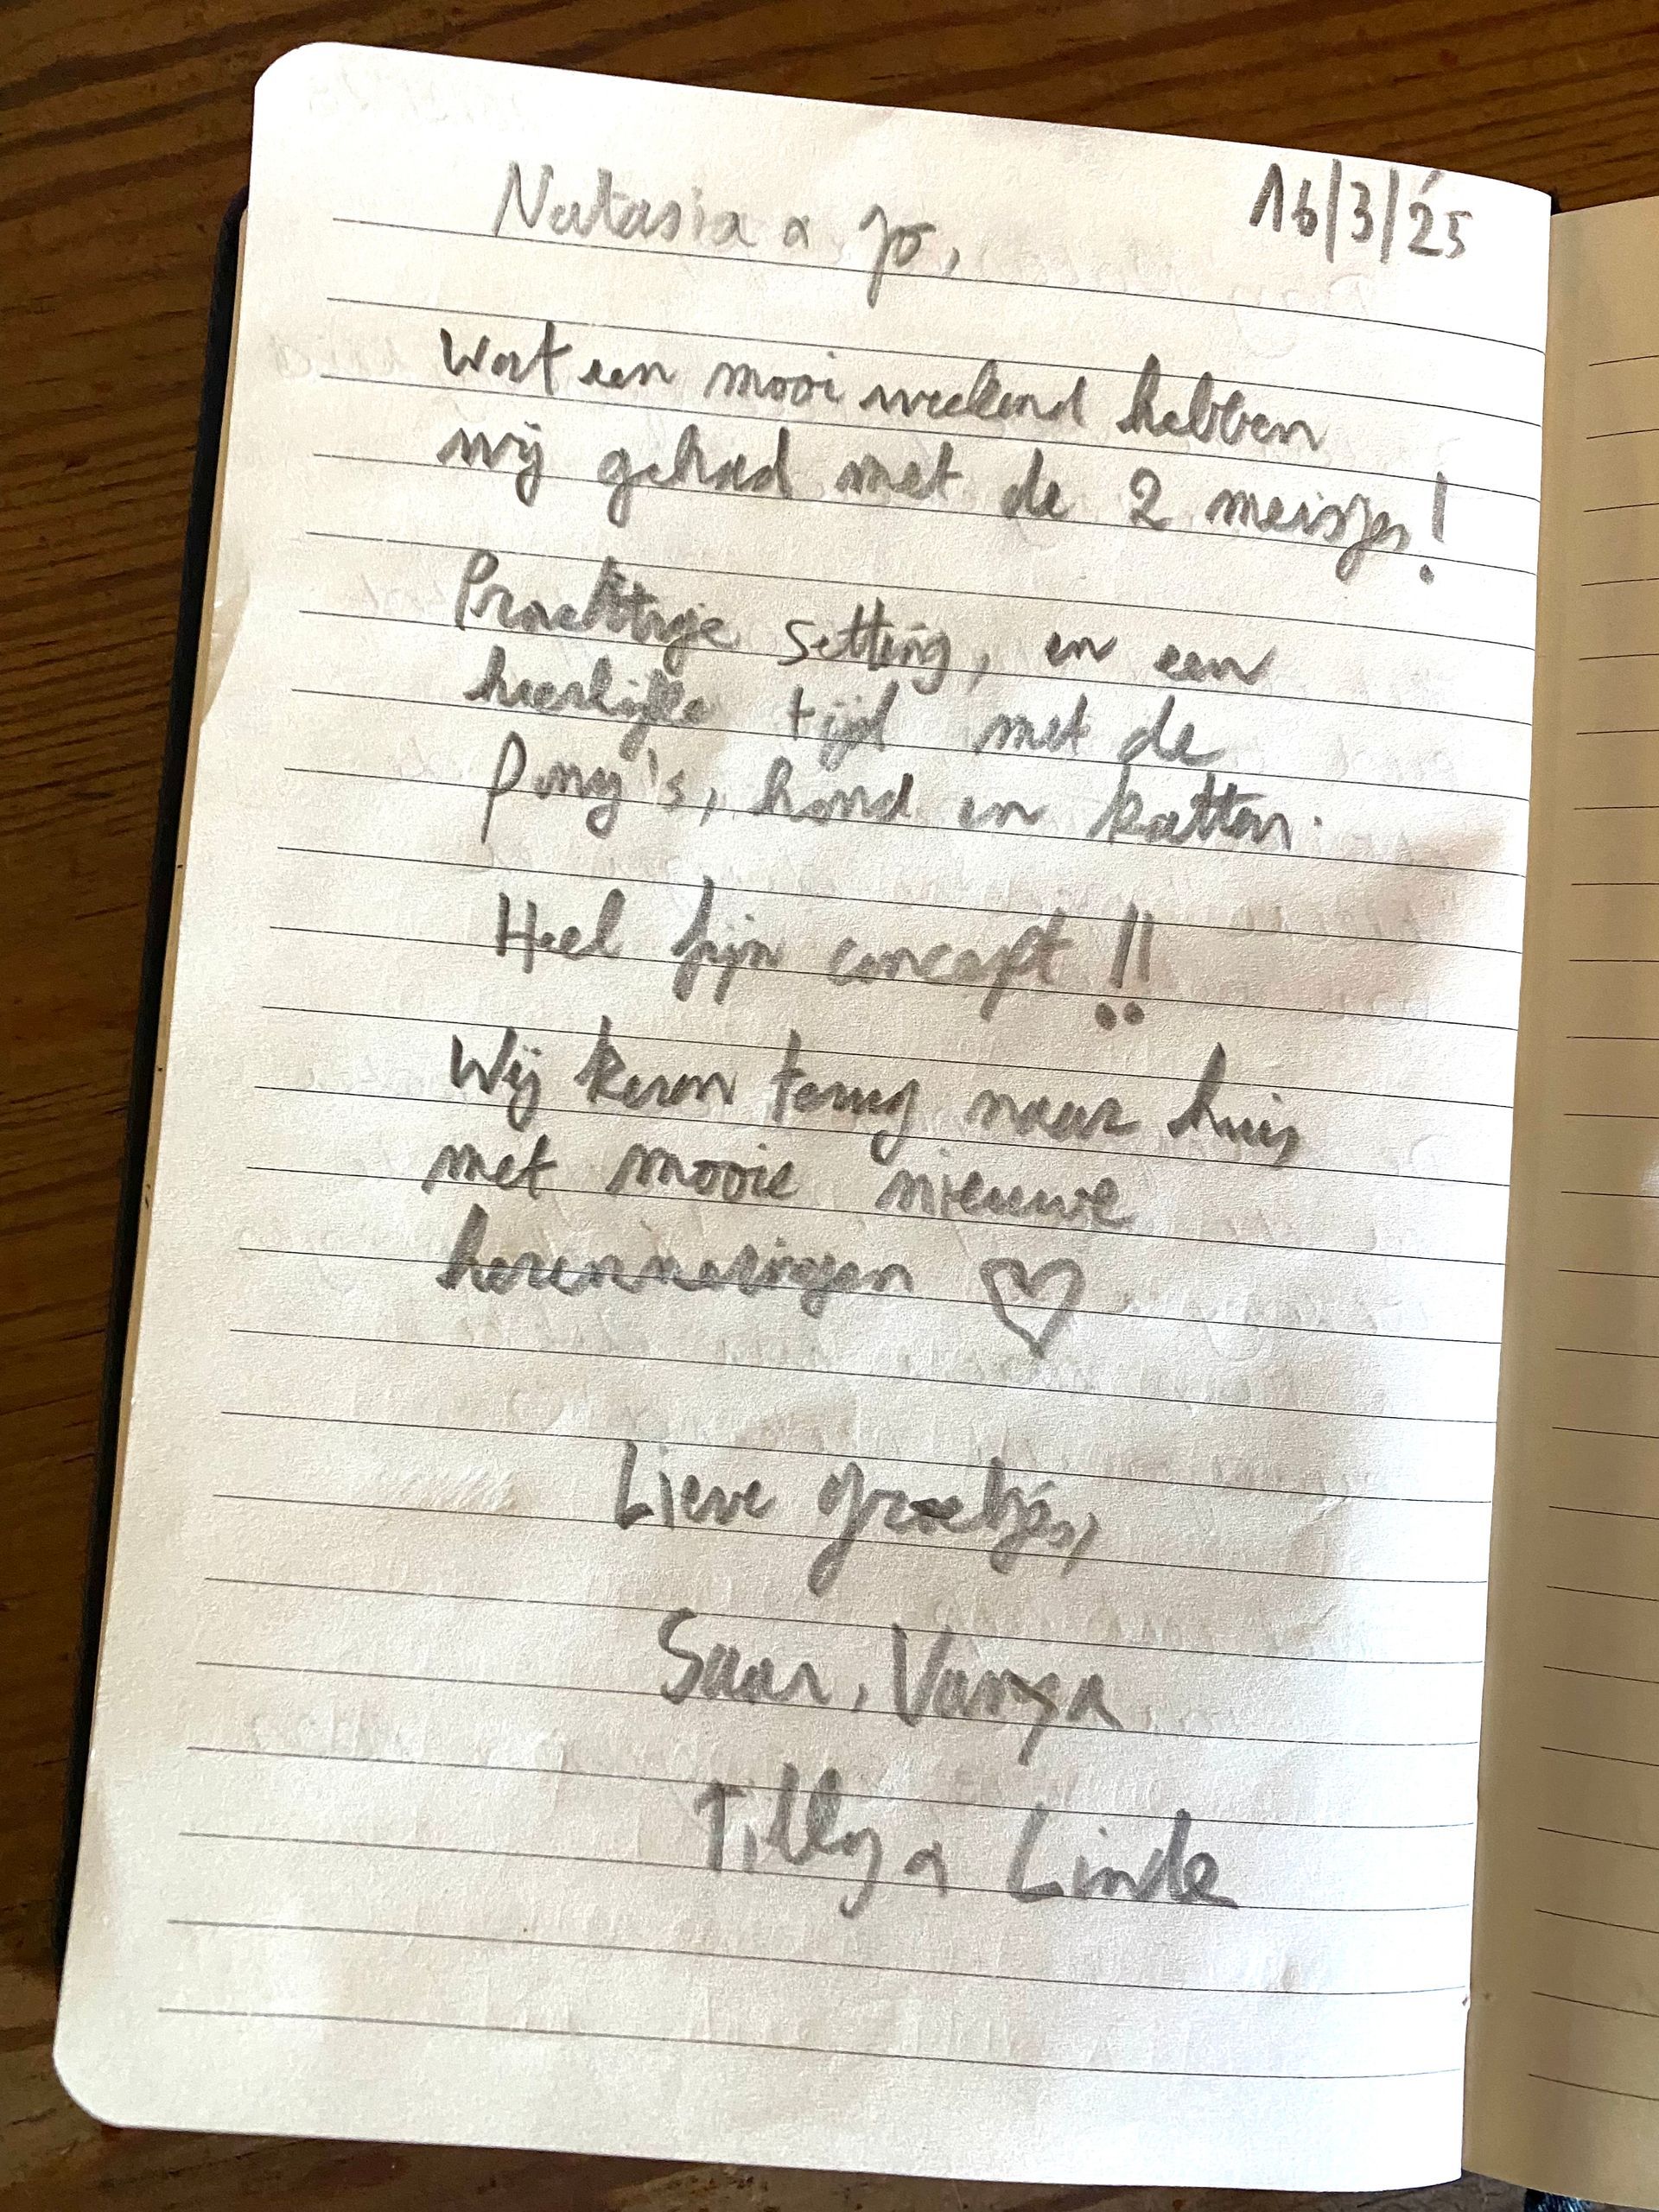 16/3/25
Natasia & Jo,
Wat een mooi weekend hebben
wij gehad met de 2 meisjes!
Prachtige setting, en een
heerlijke tijd met de
pony's, hond en katten.
Heel fijn concept!!
Wij keren terug naar huis
met mooie nieuwe
herinneringen ♡
Lieve groetjes,
Saar, Vanya
Tilly & Linde